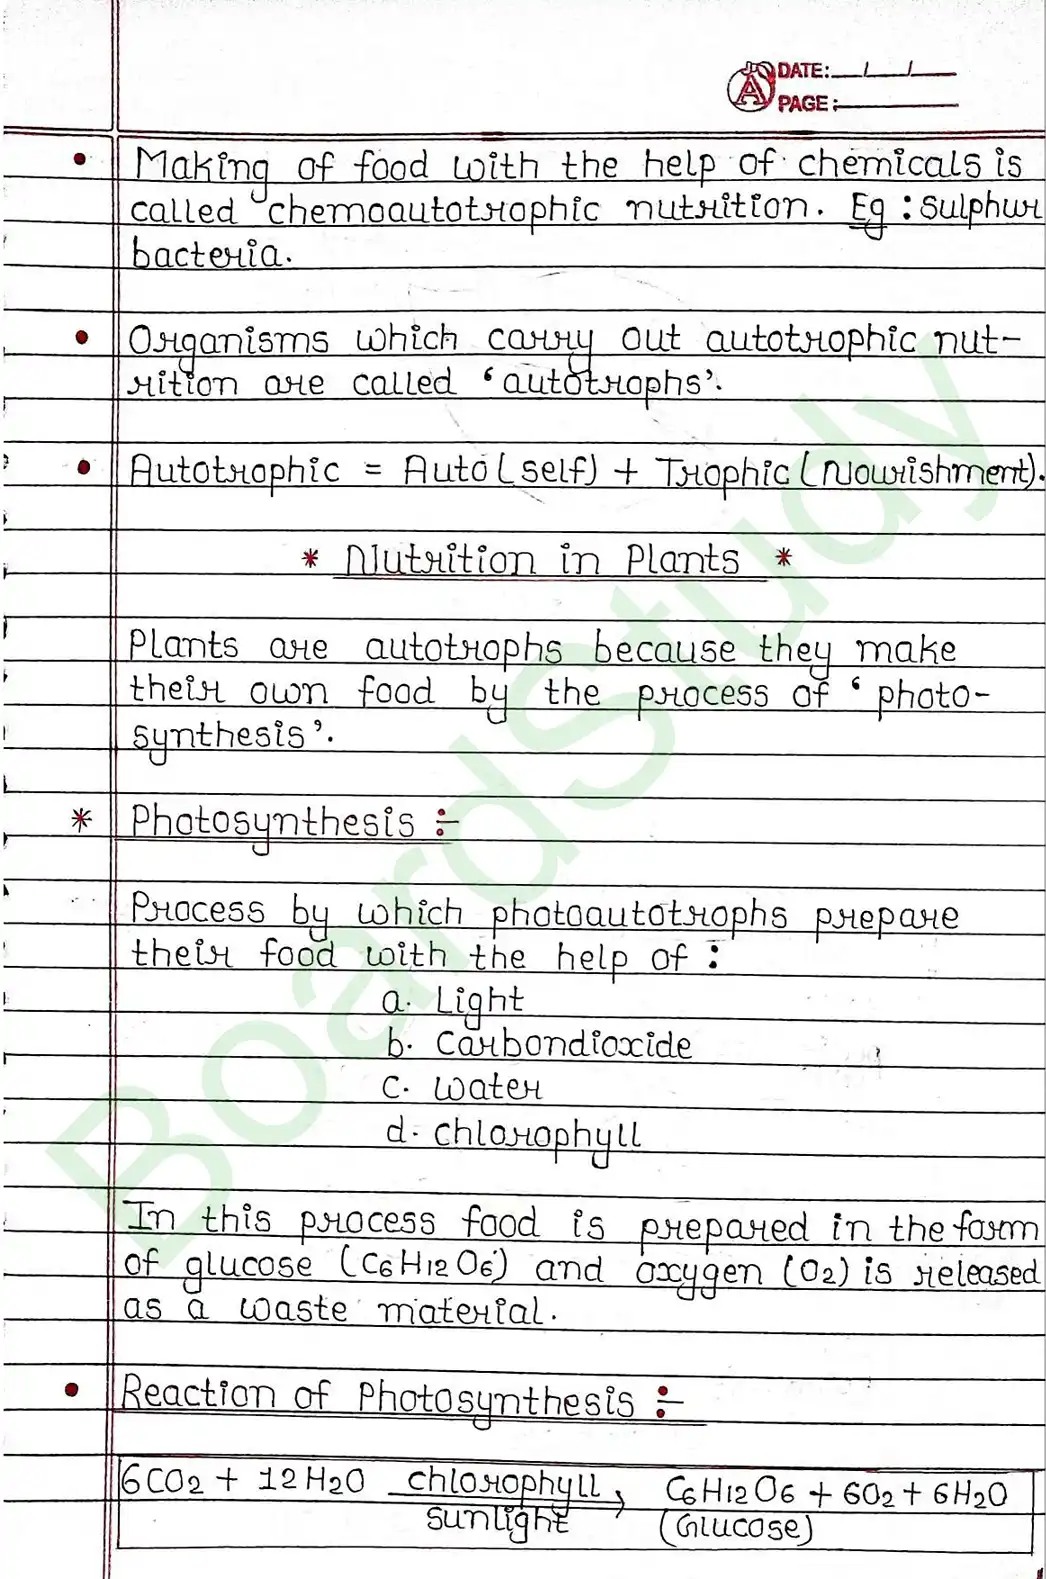 DATE: / /
PAGE:
• Making of food with the help of chemicals is
called chemoautotrophic nutrition. Eg : sulphur
bacteria.
• Organisms which carry out autotrophic nut-
rition are called ‘autotrophs’.
• Autotrophic = Auto (self) + Trophic (Nourishment).
* Nutrition in Plants *
Plants are autotrophs because they make
their own food by the process of ‘photo-
synthesis’.
* Photosynthesis :-
Process by which photoautotrophs prepare
their food with the help of :
a. Light
b. Carbondioxide
c. water
d. chlorophyll
In this process food is prepared in the form
of glucose (C6H12O6) and oxygen (O2) is released
as a waste material.
• Reaction of Photosynthesis :-
6CO2 + 12H2O chlorophyll → C6H12O6 + 6O2 + 6H2O
sunlight (Glucose)
BoardStudy